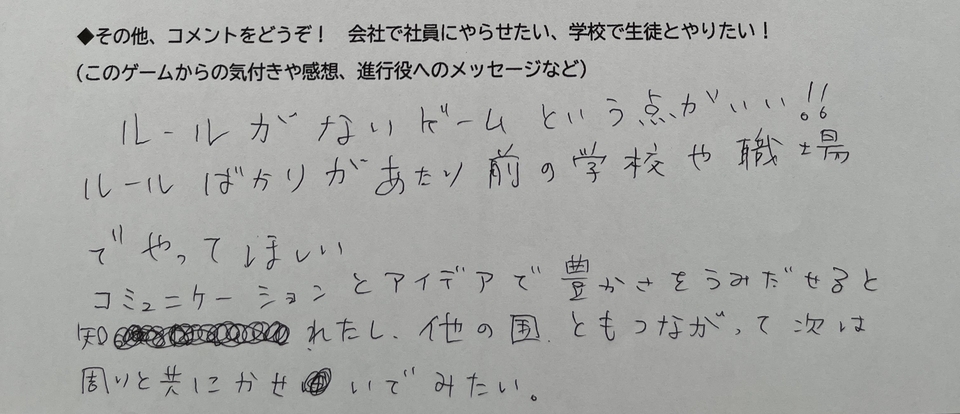 ◆その他、コメントをどうぞ！　会社で社員にやらせたい、学校で生徒とやりたい！
（このゲームからの気付きや感想、進行役へのメッセージなど）
ルールがないゲームという点がいい!!
ルールばかりがあたり前の学校や職場
でやってほしい
コミュニケーションとアイデアで豊かさをうみだせると
知れたし、他の国ともつながって次は
周りと共にかせいでみたい。